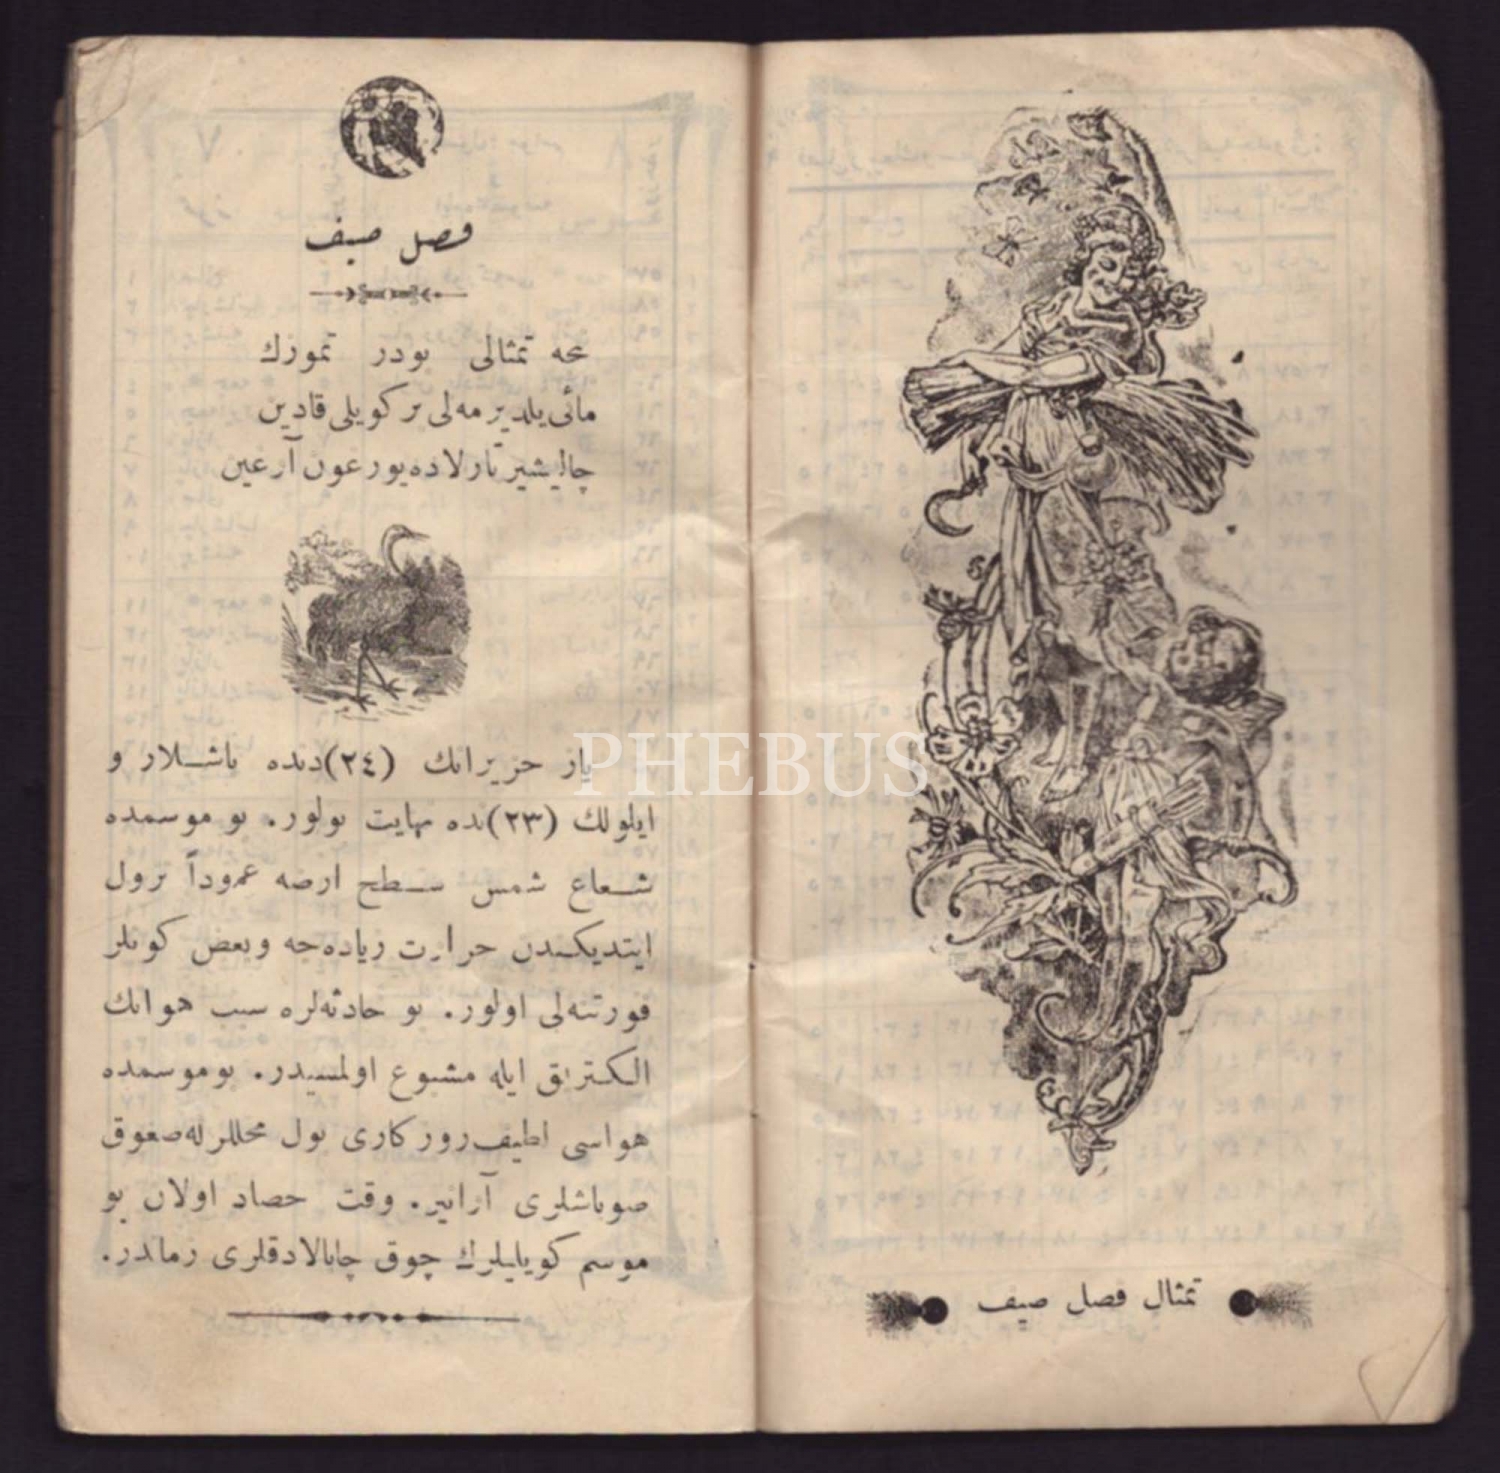 فصل صيف
عجه تمثالى بودر تموزك
مائى يلديرمه‌لى بر كويلى قادين
چاليشير تارلاده يورغون آرغين
ياز حزيرانك (٢٤)دنده باشلار و
ايلولك (٢٣)نده نهايت بولور. بو موسمده
شعاع شمس سطح ارضه عموداً نزول
ايتديكندن حرارت زياده‌جه وبعض كونلر
فورتنه‌لى اولور. بو حادثه‌لره سبب هوانك
الكتريق ايله مشبوع اولمسيدر. بو موسمده
هواسى لطيف روزكارى بول محللرله صغوق
صوباشلرى آرانير. وقت حصاد اولان بو
موسم كويليلرك چوق چابالادقلرى زماندر.
تمثال فصل صيف
PHEBUS